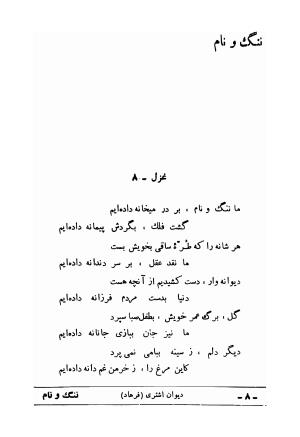 ننگ و نام
غزل - ۸
ما ننگ و نام ، بر در میخانه داده‌ایم
گشت فلك ، بگردش پیمانه داده‌ایم
هر شانه را که طرّهٔ ساقی بخویش بست
ما نقد عقل ، بر سر دندانه داده‌ایم
دیوانه وار ، دست کشیدیم از آنچه هست
دنیا بدست مردم فرزانه داده‌ایم
گل ، برگ عمر خویش ، بطفل صبا سپرد
ما نیز جان ببازی جانانه داده‌ایم
دیگر دلم ، ز سینه پیامی نمی‌برد
کاین مرغ را ، ز خرمن غم دانه داده‌ایم
ننگ و نام دیوان اشتری (فرهاد) - ۸ -